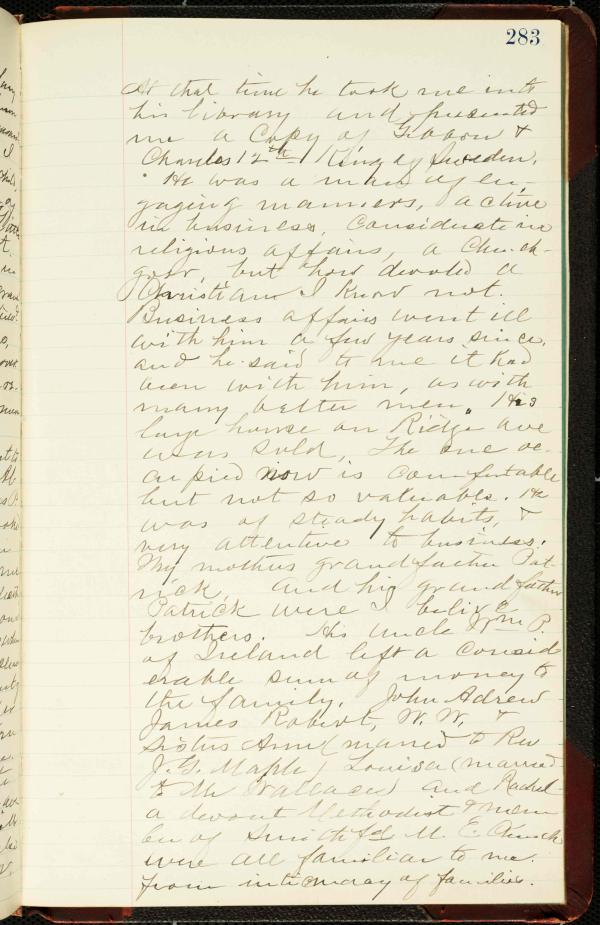 283
At that time he took me into
his library and presented
me a Copy of Gibbon &
Charles 12th King of Sweden.
He was a man of en-
gaging manners, active
in business, Considerate in
religious affairs, a Church-
goer, but how devoted a
Christian I know not.
Business affairs went ill
with him a few years since.
and he said to me it had
been with him, as with
many better men. His
large house on Ridge ave
was sold, The one oc-
cupied now is comfortable
but not so valuable. He
was of steady habits, &
very attentive to business.
My mothers grandfather Pat-
rick, and his grandfather
Patrick were I believe
brothers. His uncle Wm P.
of Ireland left a consid
erable sum of money to
the family. John Adrew
James Robert, W. W. &
Sisters Anne (maried to Rev
J. G. Maple) Louisa (married
to Mr Wallace) and Rachel
a devout Methodist & mem
ber of Smithfd M. E. Church
were all familiar to me.
from intimacy of families.